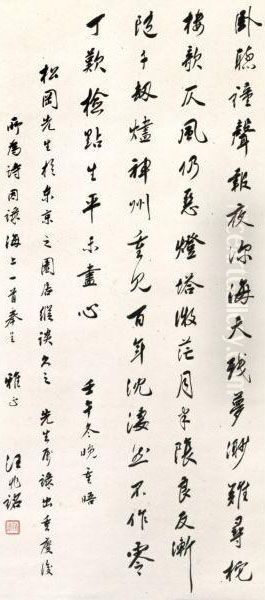 臥聽鐘聲報夜深海天殘夢渺難尋柁
樓欹仄風仍惡燈塔微茫月半陰良友漸
隨千劫燼神州重見百年沈淒然不作零
丁歎檢點生平未盡心 壬午冬晚重晤
松岡先生於東京之園居縱談久之 先生讀出重慶後
所為詩因讀海上一首奉呈 雅正 汪兆銘